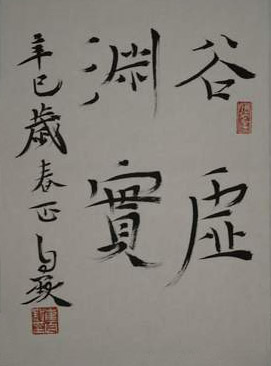 谷虛
淵實
辛巳歲春正